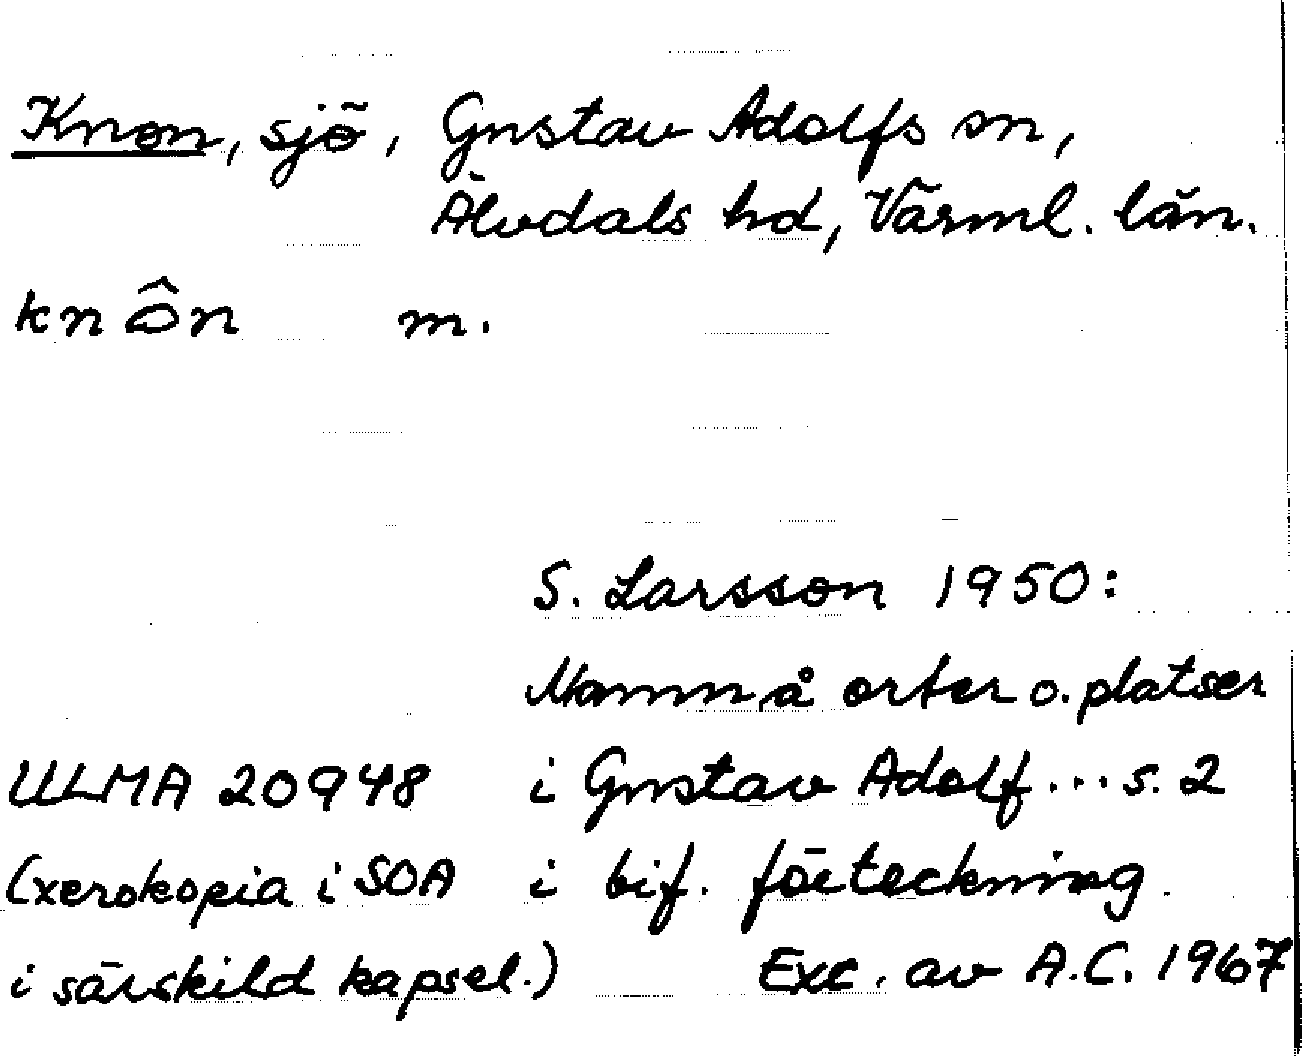 Knon, sjö, Gustav Adolfs sn,
Älvdals hd, Värml. län.
knôn m.
S. Larsson 1950:
Namn å orter o. platser
ULMA 20948 i Gustav Adolf... s. 2
(xerokopia i SOA i bif. förteckning.
i särskild kapsel.) Exc. av A.C. 1967